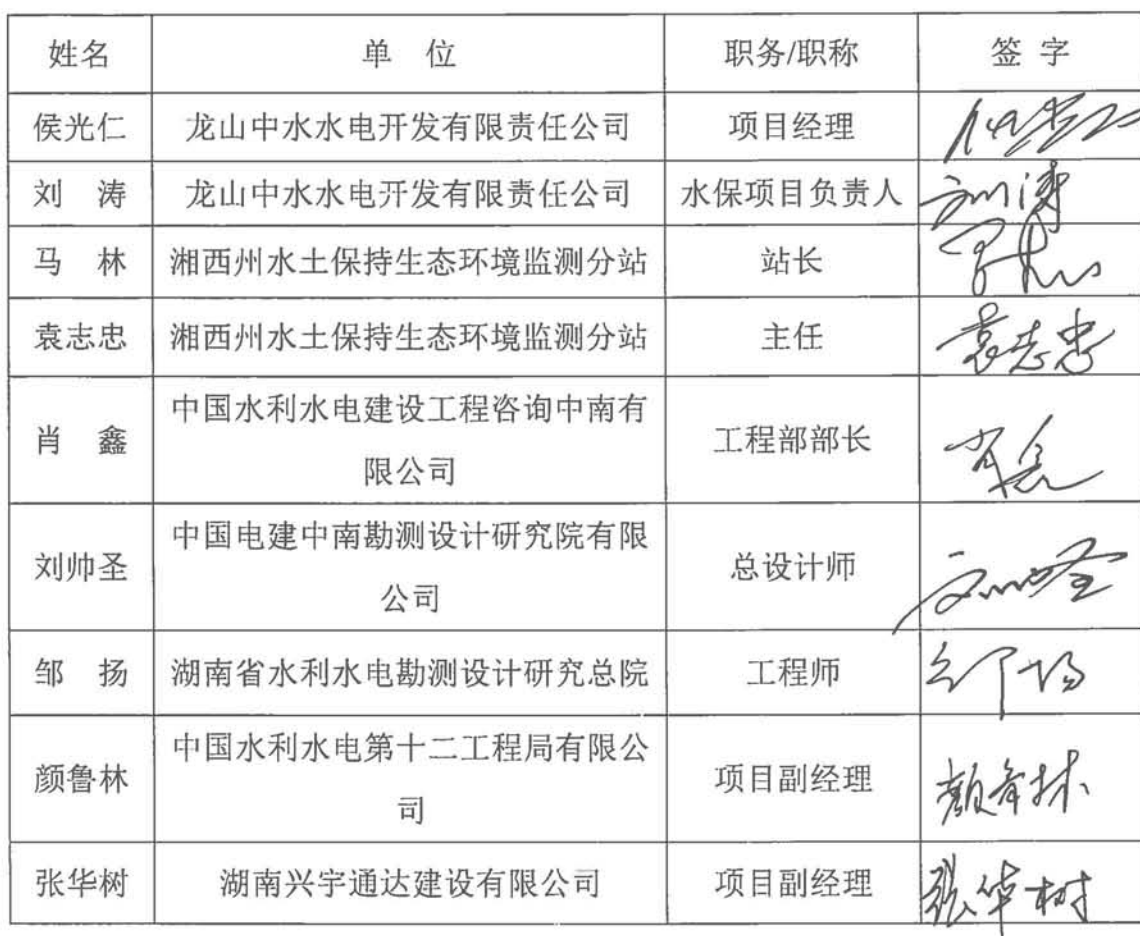 姓名 单 位 职务/职称 签 字
侯光仁 龙山中水水电开发有限责任公司 项目经理
刘 涛 龙山中水水电开发有限责任公司 水保项目负责人 刘涛
马 林 湘西州水土保持生态环境监测分站 站长
袁志忠 湘西州水土保持生态环境监测分站 主任 袁志忠
中国水利水电建设工程咨询中南有
肖 鑫 工程部部长
限公司
中国电建中南勘测设计研究院有限
刘帅圣 总设计师
公司
邹 扬 湖南省水利水电勘测设计研究总院 工程师 邹扬
中国水利水电第十二工程局有限公
颜鲁林 项目副经理 颜鲁林
司
张华树 湖南兴宇通达建设有限公司 项目副经理 张华树